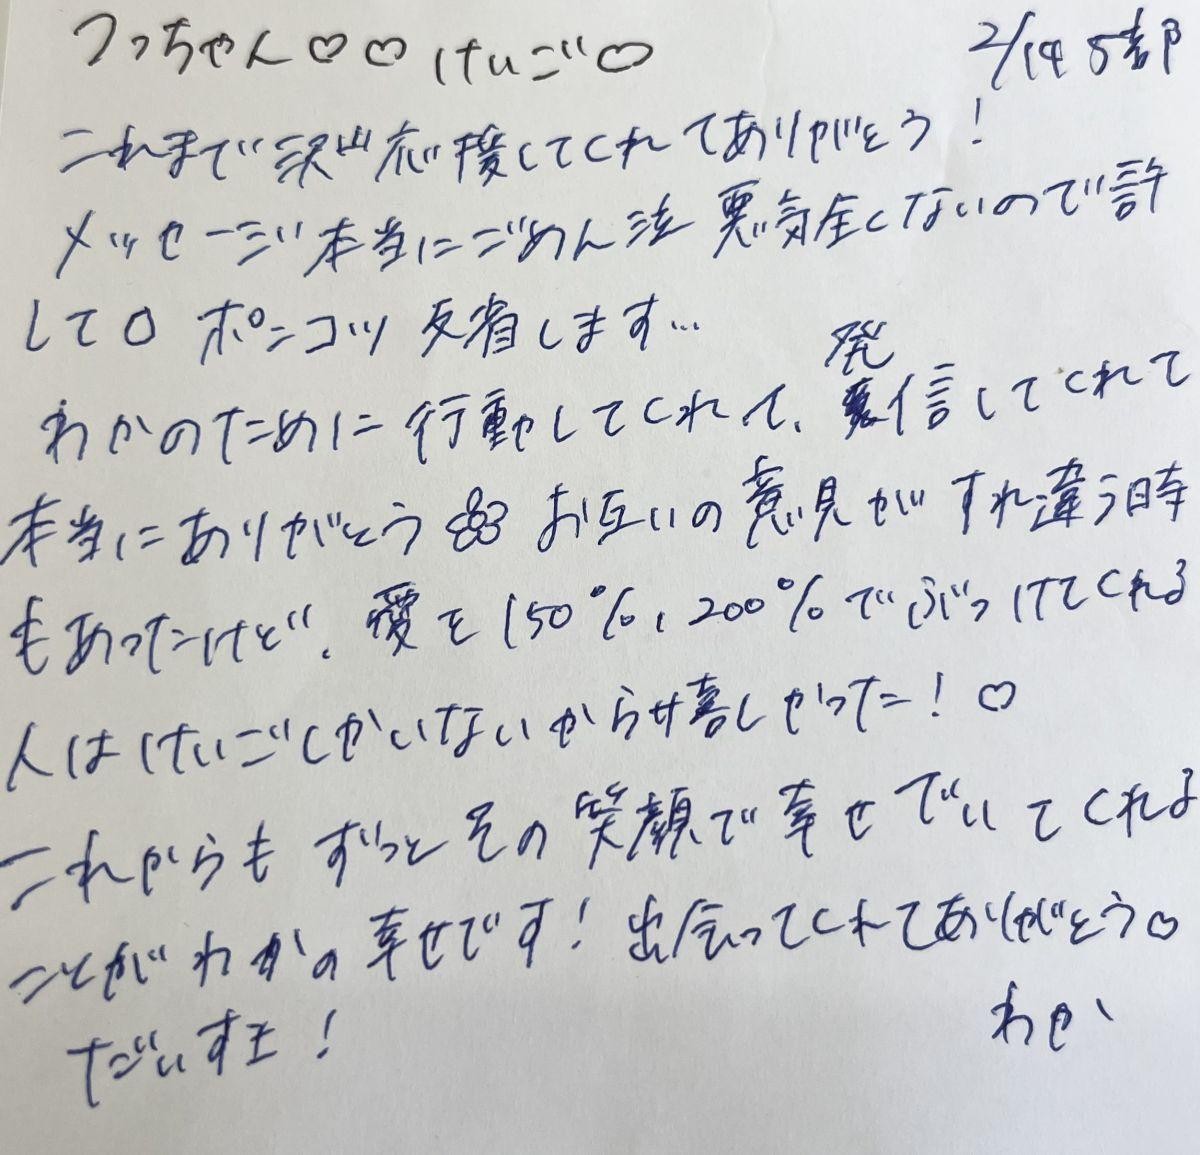 つっちゃん♡♡ けいご♡ 2/14 5部
これまで沢山応援してくれてありがとう!
メッセージ本当にごめん泣 悪気全くないので許
して〇 ポンコツ 反省します…
わかのために行動してくれて、発信してくれて
本当にありがとう お互いの意見がすれ違う時
もあったけど、愛を150%、200%でぶつけてくれる
人はけいごしかいないから嬉しかった!♡
これからもずっとその笑顔で幸せでいてくれる
ことがわかの幸せです!出会ってくれてありがとう♡
だいすき! わか